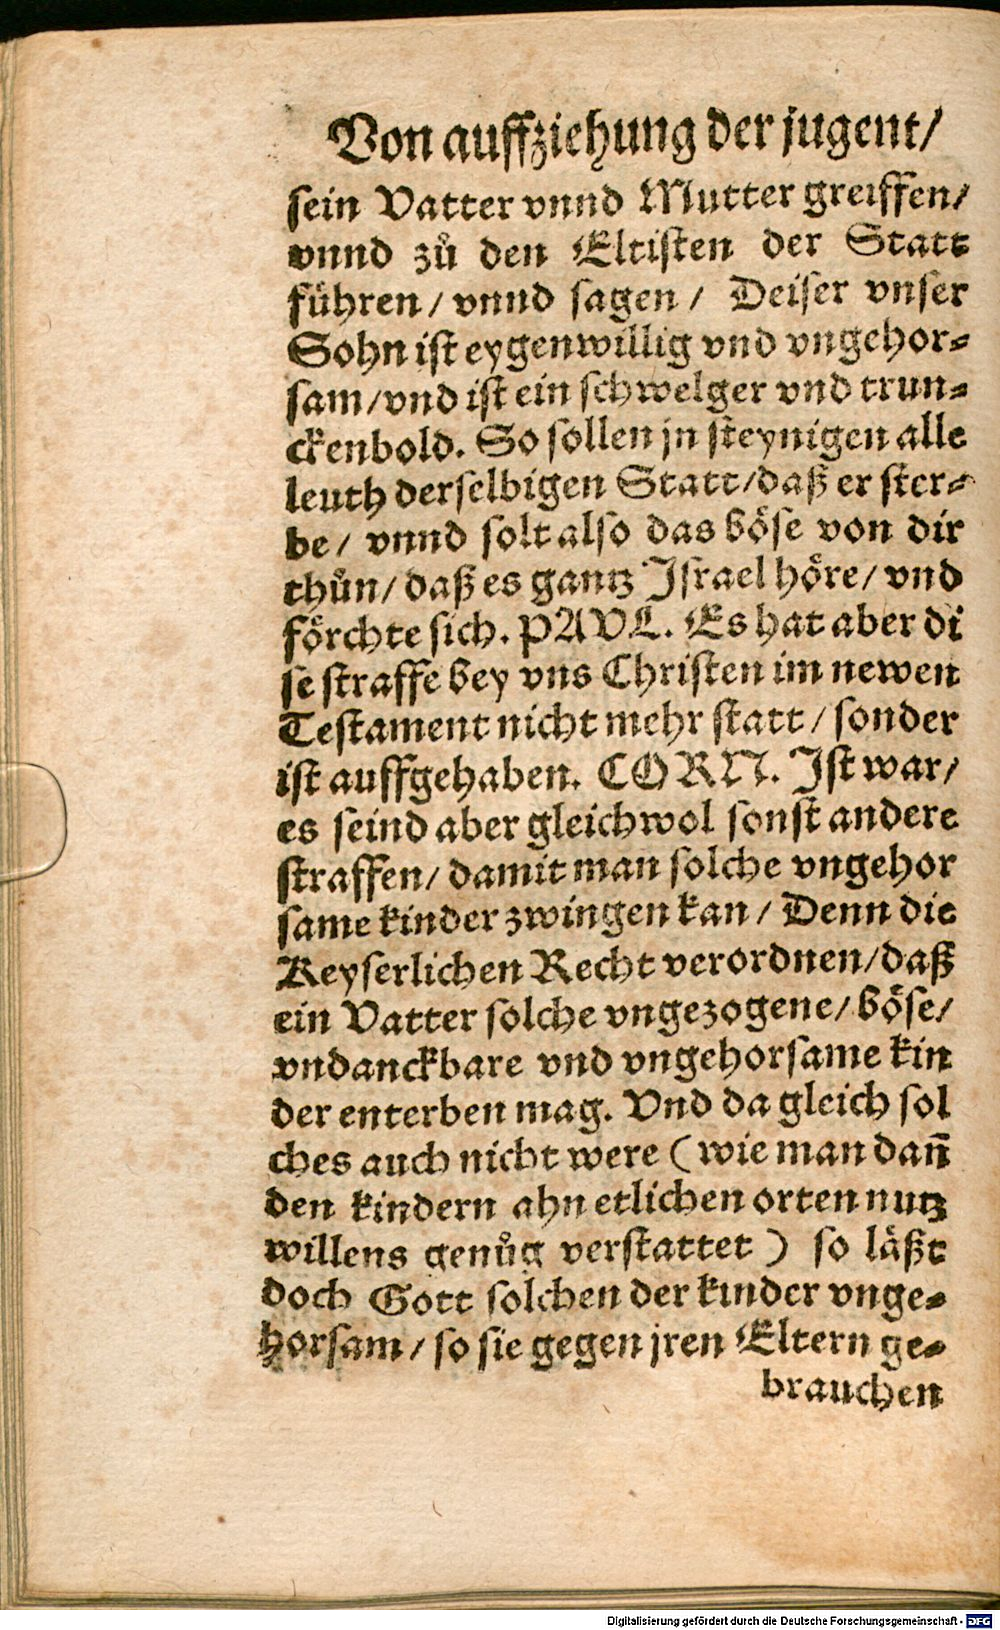 Von auffziehung der jugent/
sein Vatter vnnd Mutter greiffen/
vnnd zů den Eltisten der Statt
führen / vnnd sagen / Deiser vnser
Sohn ist eygenwillig vnd vngehor⸗
sam/vnd ist ein schwelger vnd trun⸗
ckenbold. So sollen jn steynigen alle
leuth derselbigen Statt/daß er ster⸗
be / vnnd solt also das böse von dir
thůn/ daß es gantz Israel höre/ vnd
förchte sich. PAVL. Es hat aber di
se straffe bey vns Christen im newen
Testament nicht mehr statt / sonder
ist auffgehaben. CORN. Ist war/
es seind aber gleichwol sonst andere
straffen/ damit man solche vngehor
same kinder zwingen kan / Denn die
Keyserlichen Recht verordnen/daß
ein Vatter solche vngezogene/ böse/
vndanckbare vnd vngehorsame kin
der enterben mag. Vnd da gleich sol
ches auch nicht were ( wie man dañ
den kindern ahn etlichen orten nutz
willens genůg verstattet ) so läßt
doch Gott solchen der kinder vnge⸗
horsam / so sie gegen jren Eltern ge⸗
brauchen
Digitalisierung gefördert durch die Deutsche Forschungsgemeinschaft - DFG